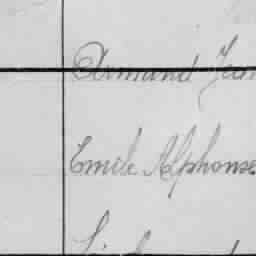 Armand Jean
Emile Alphonse